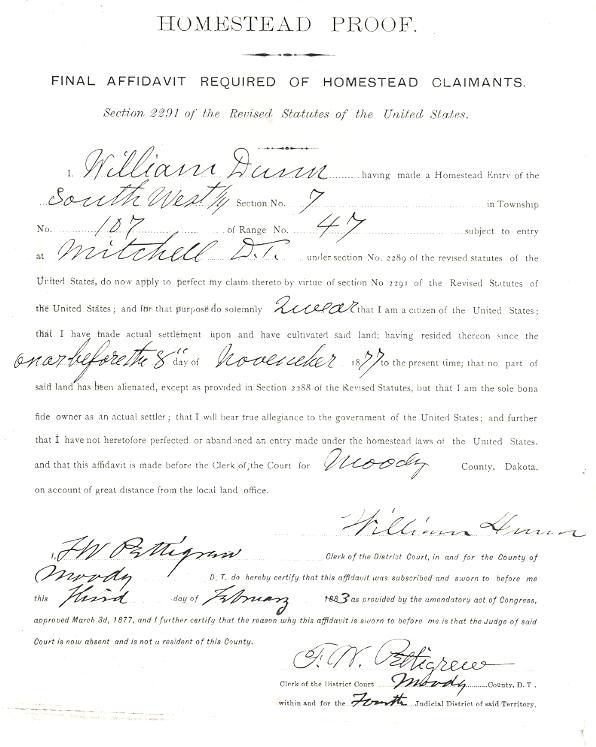 HOMESTEAD PROOF.
FINAL AFFIDAVIT REQUIRED OF HOMESTEAD CLAIMANTS.
Section 2291 of the Revised Statutes of the United States.
I, William Dunn having made a Homestead Entry of the
South West 1/4 Section No. 7 in Township
No. 107 of Range No. 47 subject to entry
at Mitchell D.T. under section No. 2289 of the revised statutes of the
United States, do now apply to perfect my claim thereto by virtue of section No 2291 of the Revised Statutes of
the United States; and for that purpose do solemnly swear that I am a citizen of the United States;
that I have made actual settlement upon and have cultivated said land; having resided thereon since the
on or before the 8" day of November 1877 to the present time; that no part of
said land has been alienated, except as provided in Section 2288 of the Revised Statutes, but that I am the sole bona
fide owner as an actual settler; that I will bear true allegiance to the government of the United States; and further
that I have not heretofore perfected or abandoned an entry made under the homestead laws of the United States.
and that this affidavit is made before the Clerk of the Court for Moody County, Dakota.
on account of great distance from the local land office.
William Dunn
I, F W Pettigrew Clerk of the District Court, in and for the County of
Moody D. T. do hereby certify that this affidavit was subscribed and sworn to before me
this Third day of February 1883 as provided by the amendatory act of Congress,
approved March 3d, 1877, and I further certify that the reason why this affidavit is sworn to before me is that the Judge of said
Court is now absent and is not a resident of this County.
F. W. Pettigrew
Clerk of the District Court Moody County, D. T.
within and for the Fourth Judicial District of said Territory.